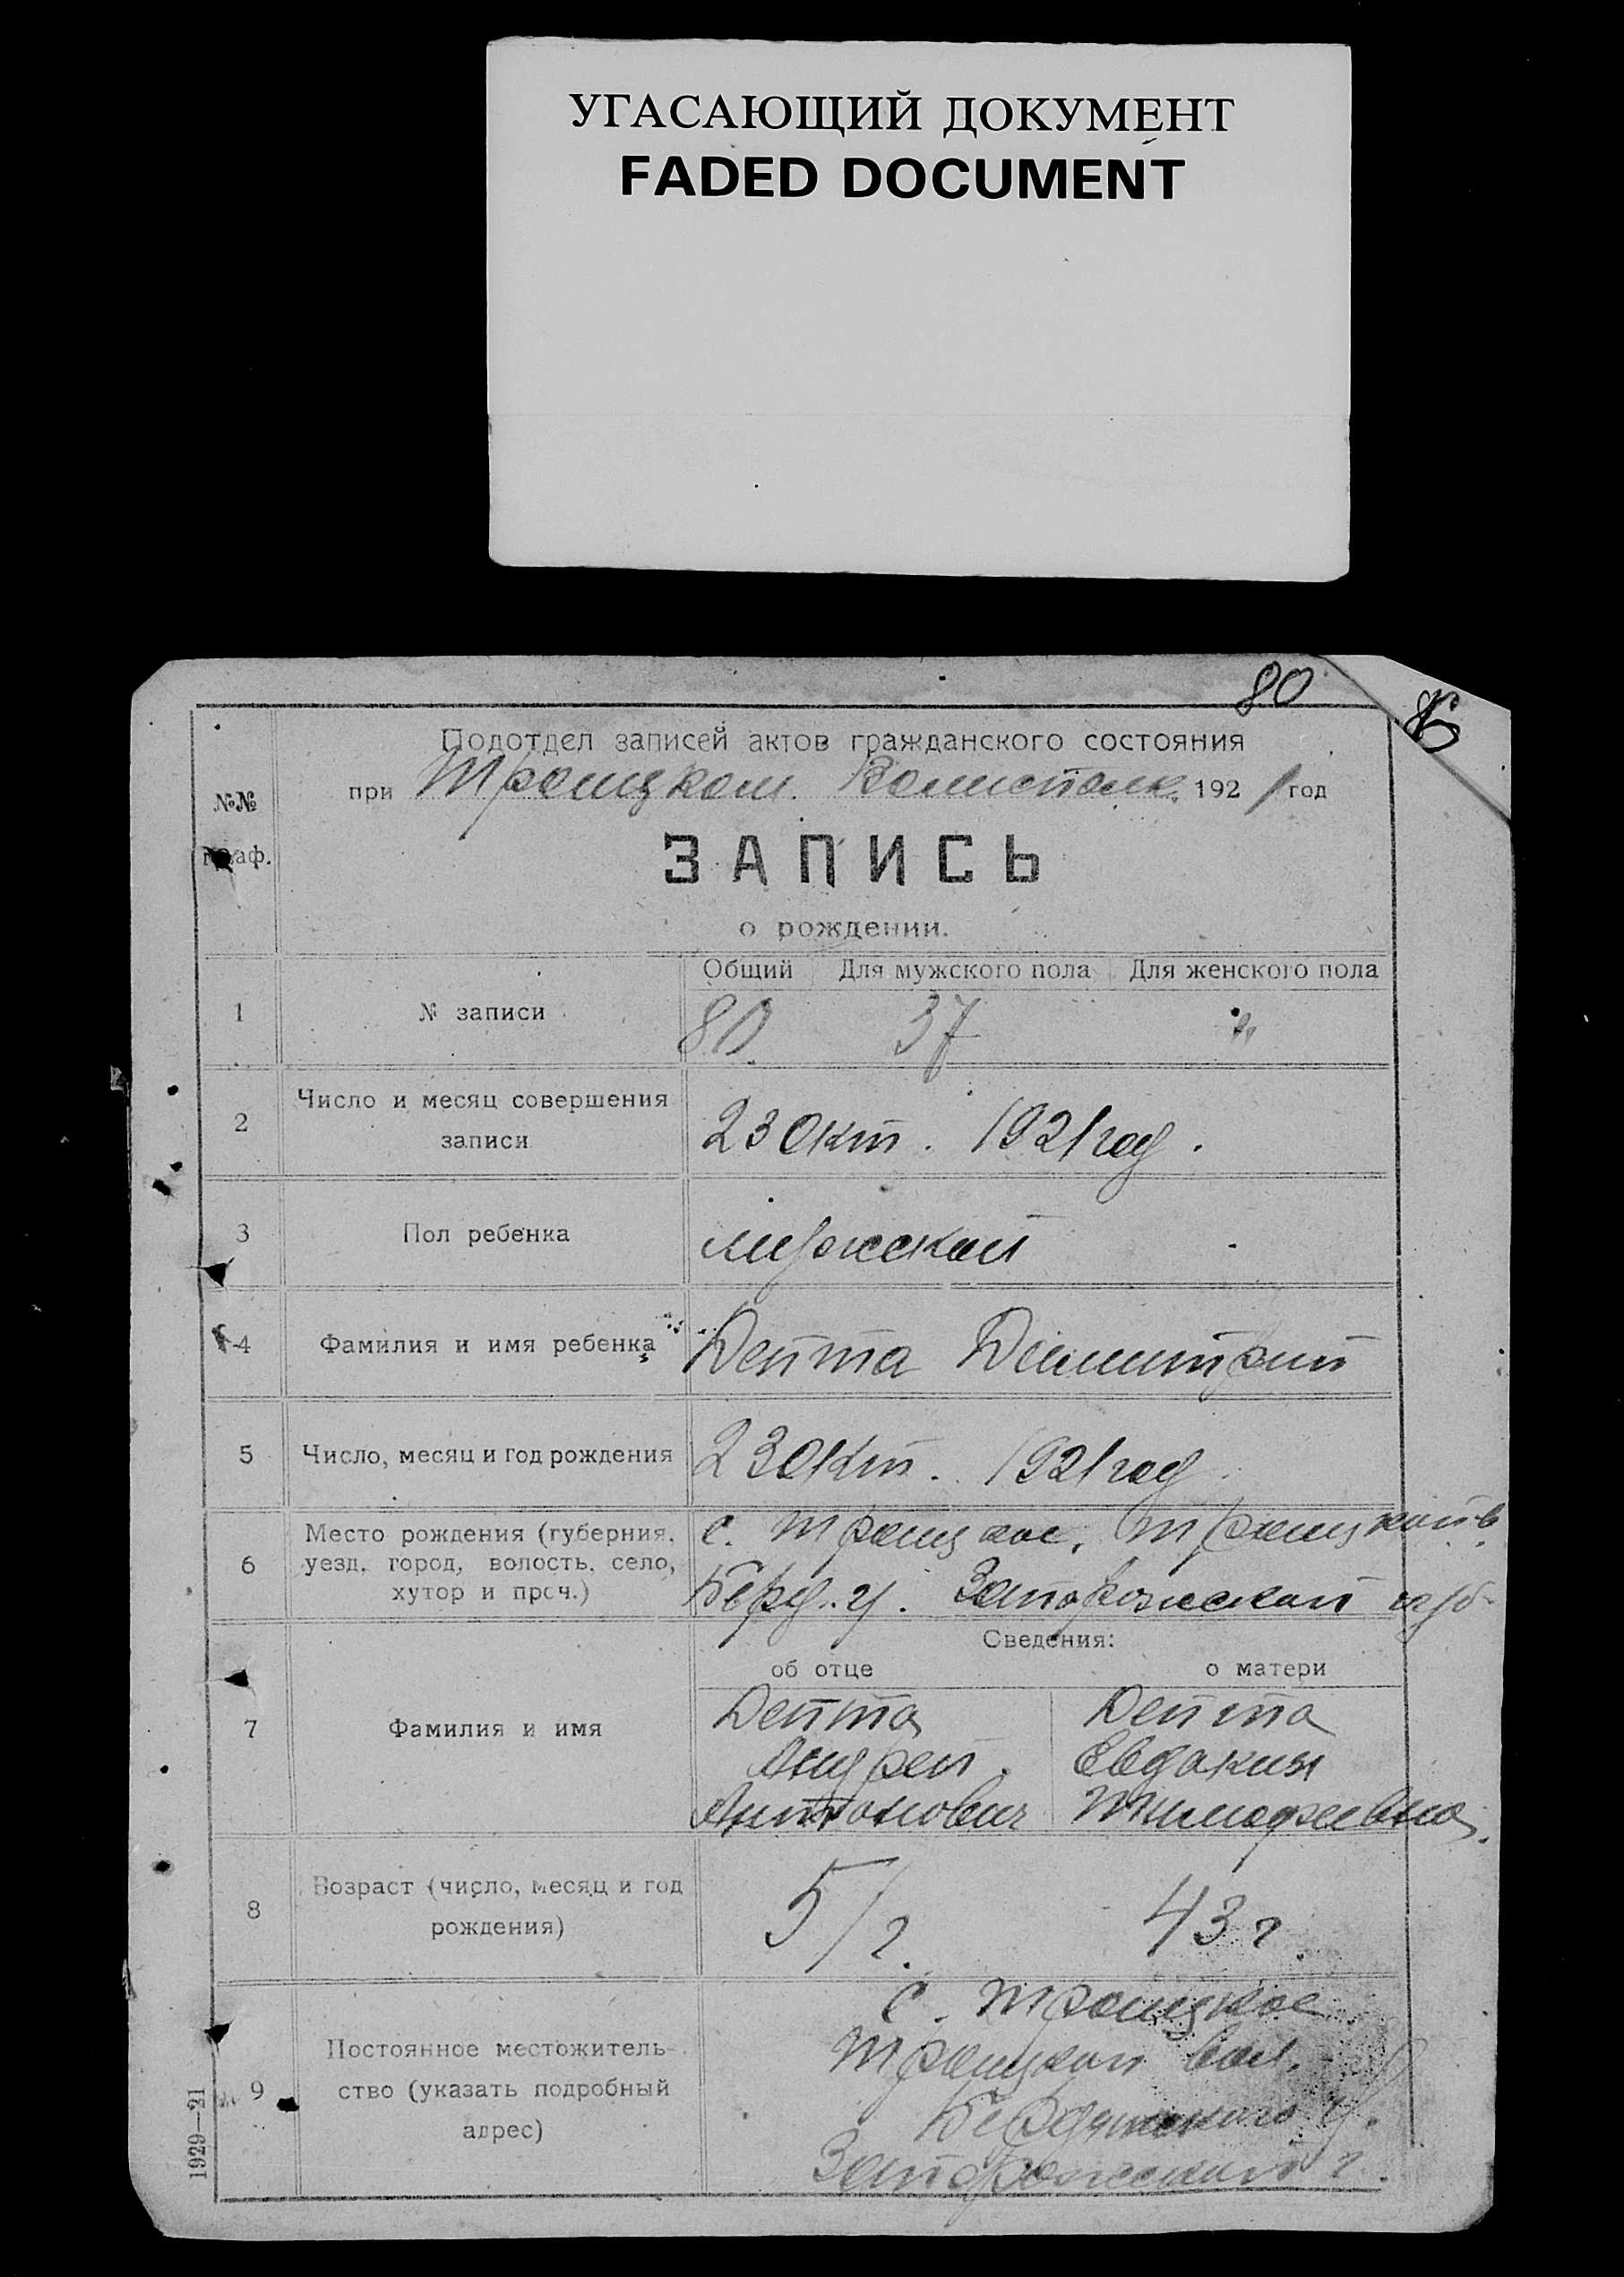 УГАСАЮЩИЙ ДОКУМЕНТ
FADED DOCUMENT
80
Подотдел записей актов гражданского состояния
№№
граф.
при Троицком Волисполк. 1921 год
ЗАПИСЬ
о рождении.
Общий Для мужского пола Для женского пола
1 № записи 80. 37 "
2 Число и месяц совершения
записи 23 Окт. 1921 год.
3 Пол ребенка мужской
4 Фамилия и имя ребенка Депта Димитрий
5 Число, месяц и год рождения 23 Окт. 1921 год
6 Место рождения (губерния, с. Троицкое, Троицкой в.
уезд, город, волость, село,
хутор и проч.) Берд. у. Запорожской губ.
Сведения:
об отце о матери
7 Фамилия и имя Депта Депта
Андрей Евдокия
Антонович Тимофеевна
8 Возраст (число, месяц и год
рождения) 51 г. 43 г.
9 Постоянное местожитель-
ство (указать подробный
адрес)
с. Троицкое
Троицкой вол.
Бердянского у.
Запорожской г.
1929—21